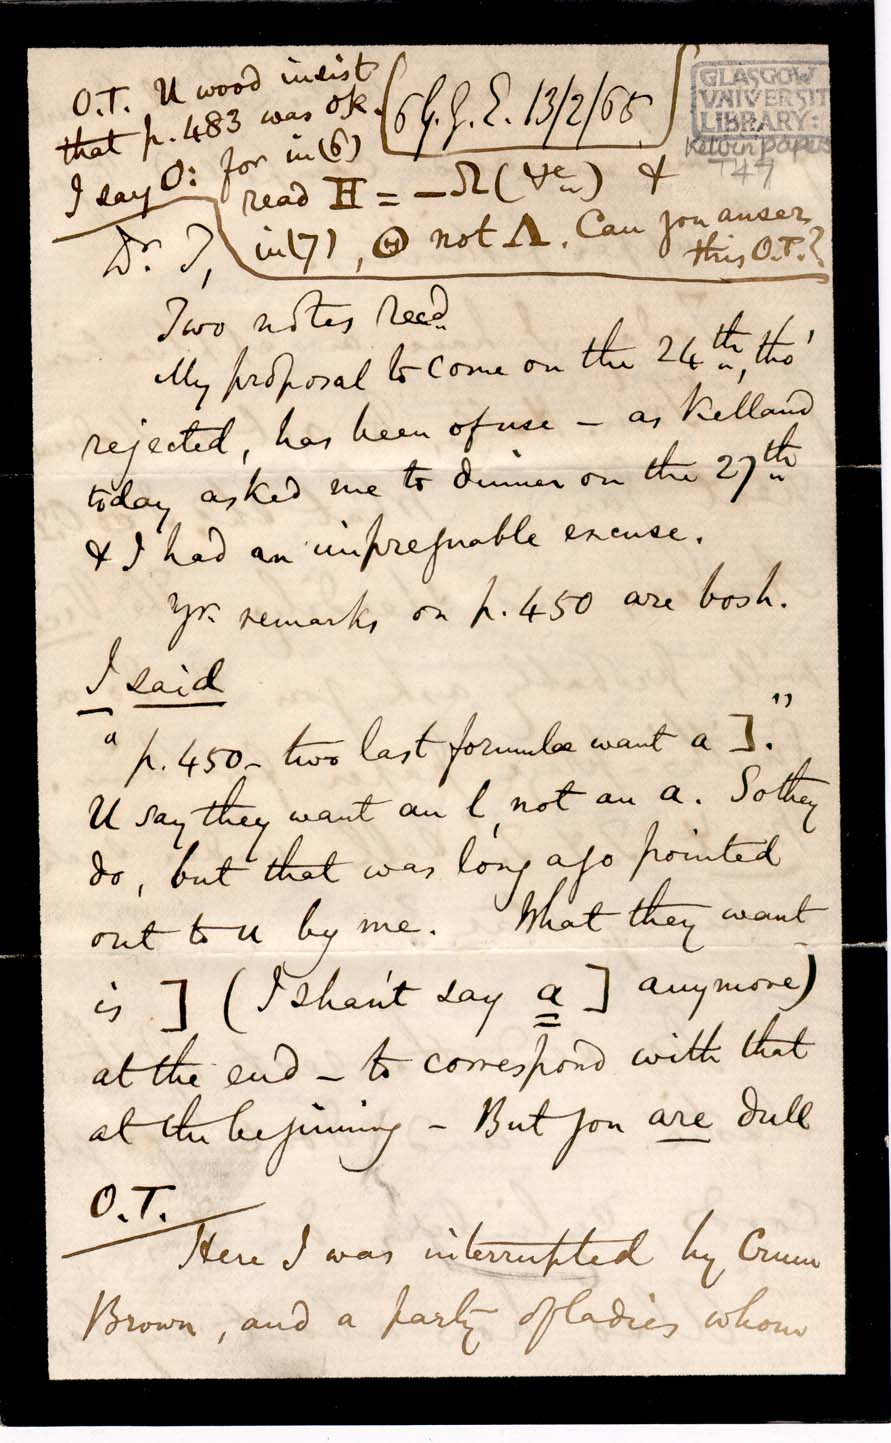 O.T. U wood insist
that p. 483 was ok.
I say O: for in (6)
read H = – Ω ( ) &
in (7), Θ not Λ. Can you anser
this O.T.?
6 G.G.E. 13/2/65.
GLASGOW
UNIVERSITY
LIBRARY:
Kelvin papers
T47
Dr. T,
Two notes recd.
My proposal to come on the 24th, tho'
rejected, has been of use – as Kelland
today asked me to dinner on the 27th
& I had an impregnable excuse.
Yr. remarks on p. 450 are bosh.
I said
"p. 450 – two last formulæ want a ]."
U say they want an l, not an a. So they
do, but that was long ago pointed
out to u by me. What they want
is ] (I shan't say a ] anymore)
at the end – to correspond with that
at the beginning – But you are dull
O.T.
Here I was interrupted by Crum
Brown, and a party of ladies whom